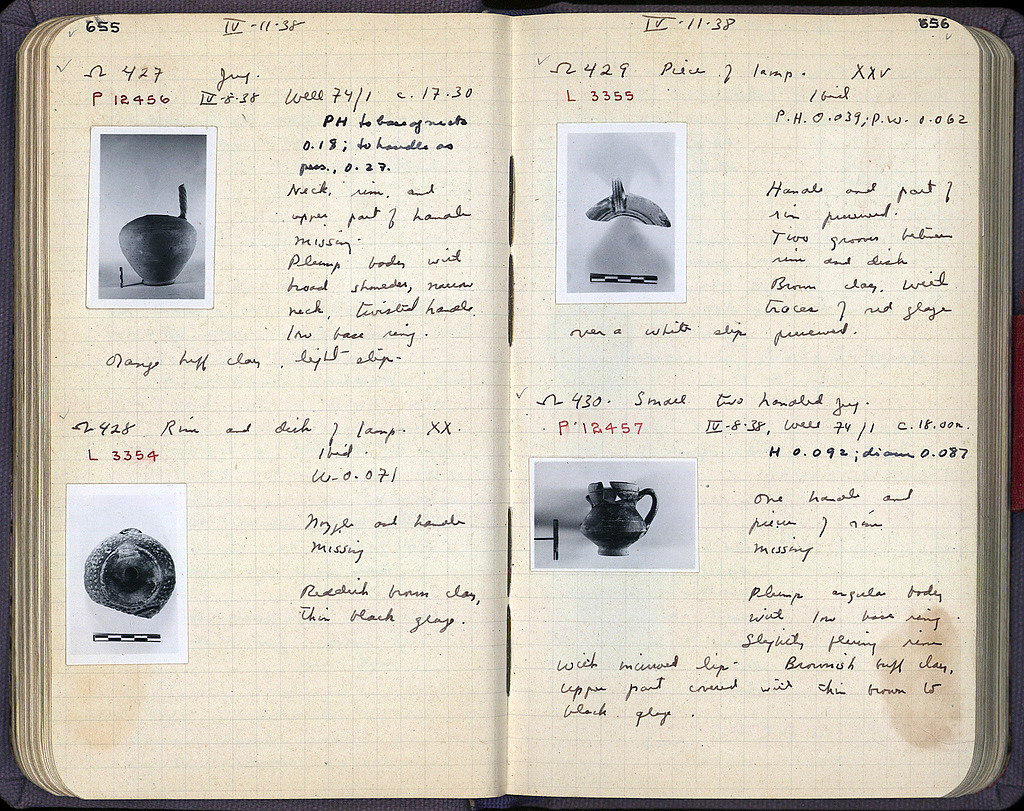 655
IV-11-38
Ω 427 Jug.
P 12456 IV-8-38 Well 74/1 c. 17.30
PH to base of neck
0.18; to handle as
pres., 0.27.
Neck, rim, and
upper part of handle
missing.
Plump body with
broad shoulder, narrow
neck, twisted handle,
low base ring.
Orange buff clay, light slip.
Ω 428 Rim and disk of lamp. XX.
L 3354 Ibid.
W. 0.071
Nozzle and handle
missing
Reddish brown clay,
thin black glaze.
IV-11-38
656
Ω 429 Piece of lamp. XXV
L 3355 Ibid
P.H. 0.039; P.W. 0.062
Handle and part of
rim preserved.
Two grooves between
rim and disk
Brown clay, with
traces of red glaze
over a white slip preserved.
Ω 430. Small two handled jug.
P 12457 IV-8-38, Well 74/1 c. 18.00m.
H 0.092; diam 0.087
One handle and
piece of rim
missing
Plump angular body
with low base ring.
Slightly flaring rim
with incurved lip. Brownish buff clay,
upper part covered with thin brown to
black glaze.